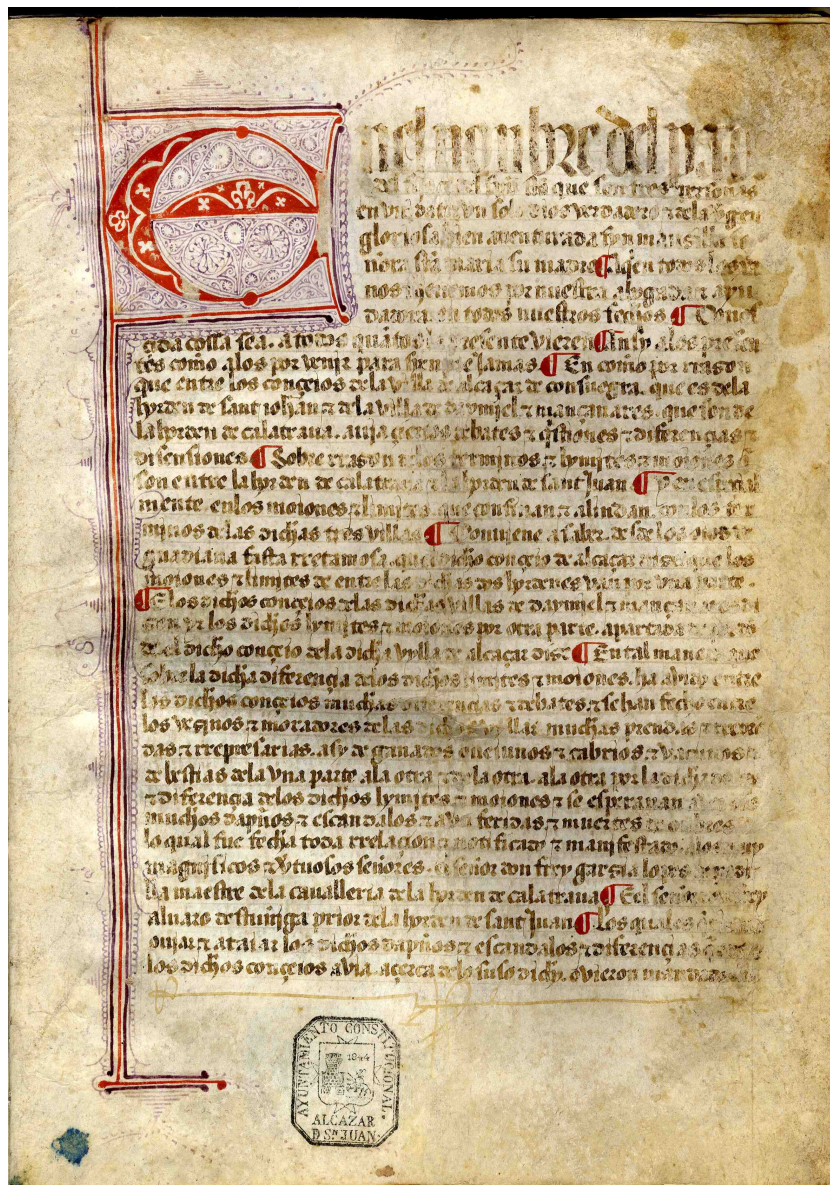 En el nonbre del padre
del fijo del spu sco que son tres personas
en unidat un solo dios verdadero de la virgen
gloriosa bien aventurada syn mansilla
ñora sta maria su madre ¶ A quien todos
nos tenemos por nuestra abogada ayu
dadora en todos nuestros fechos ¶ Conos
çida cossa sea. a todos quantos la presente vieren ¶ Ansy. alos presen
tes como alos por venir para syenpre Jamas ¶ En como por rrason
que entre los conçeios dela villa de alcaçar de consuegra. que es dela
horden de sant iohan ⁊ dela villa de daymiel ⁊ mançanares. que son de
la horden de calatraua. auia çiertos debates ⁊ questiones ⁊ diferençias ⁊
disensiones ¶ Sobre rrason delos terminos ⁊ lymites ⁊ moiones q
son entre la horden de calatraua ⁊ la horden de sant Juan ¶ Y en espeçial
mente. enlos moiones ⁊ limites. que confinan ⁊ alindan. con los ter
minos delas dichas tres villas ¶ Conviene a saber. desde los oios de
guadiana fasta rretamosa. quel dicho conçeio de alcaçar dise que los
moiones ⁊ limites de entre las dichas dos hordenes van por una parte.
¶ E los dichos conçeios delas dichas villas de daymiel ⁊ mançanares di
sen yr los dichos lymites ⁊ moiones por otra parte. apartada
de el dicho conçeio dela dicha vylla de alcaçar dise ¶ En tal manera que
sobre la dicha diferençia delos dichos limites ⁊ moiones. ha avido entre
los dichos conçeios muchas diferençias ⁊ debates. ⁊ se han fecho entre
los veçinos ⁊ moradores delas dichas villas muchas prendas ⁊
das ⁊ rrepresarias. asy de ganados oueiunos ⁊ cabrios ⁊ vacunos ⁊
de bestias dela una parte ala otra ⁊ dela otra. ala otra por la dicha
⁊ diferençia delos dichos lymites ⁊ moiones ⁊ se esperauan
muchos dapños ⁊ escandalos ⁊ aun feridas ⁊ muertes de onbres
lo qual fue fecha toda rrelaçion ⁊ notificado ⁊ manifestado. alos muy
magnificos ⁊ virtuosos señores. el señor don frey garçia lopes de padi
lla maestre dela cavalleria dela horden de calatraua ¶ E el señor don frey
aluaro destuñiga prior dela horden de sant Juan ¶ Los quales
quitar ⁊ ataiar los dichos dapños ⁊ escandalos ⁊ diferençias que entre
los dichos conçeios avia. açerca delo suso dicho. ovieron mandado
AYUNTAMIENTO CONSTITUCIONAL.
1844
ALCAZAR
D Sn JUAN.